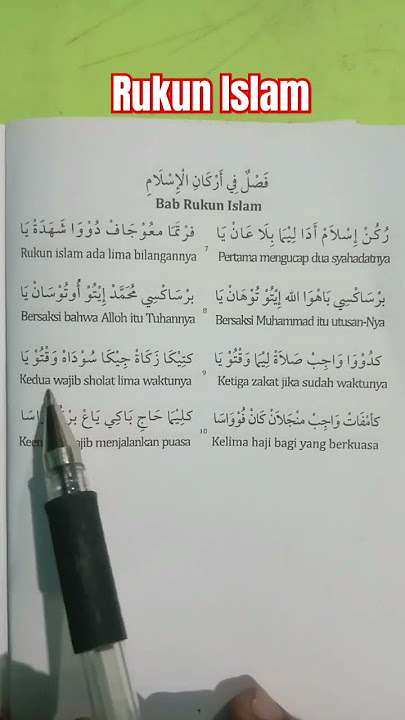 Rukun Islam
فَصْلٌ فِي أَرْكَانِ الْإِسْلَامِ
Bab Rukun Islam
رُكُنْ إِسْلَامْ أَدَا لِيْمَا بِلَا عَانْ يَا فَرْتَمَا معُوجَافْ دُوْوَا شَهَدَةْ يَا
Rukun islam ada lima bilangannya 7 Pertama mengucap dua syahadatnya
بَرْسَاكْسِي بَاهْوَا الله إِيْتُوْ تُوْهَانْ يَا بَرْسَاكْسِي مُحَمَّدْ إِيْتُوْ أُوتُوْسَانْ يَا
Bersaksi bahwa Alloh itu Tuhannya 8 Bersaksi Muhammad itu utusan-Nya
كدُوْوَا وَاجِبْ صَلَاةْ لِيْمَا وَقْتُوْ يَا كتِيْكَا زَكَاةْ جِيْكَا سُوْدَاهْ وَقْتُوْ يَا
Kedua wajib sholat lima waktunya 9 Ketiga zakat jika sudah waktunya
كأمْفَاتْ وَاجِبْ منْجَلَانْ كَانْ فُوْوَاسَا كلِيْمَا حَاجِ بَاكِي يَاغْ
menjalankan puasa 10 Kelima haji bagi yang berkuasa